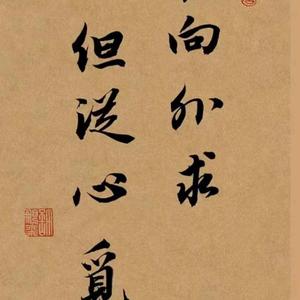 向外求
但從心覓